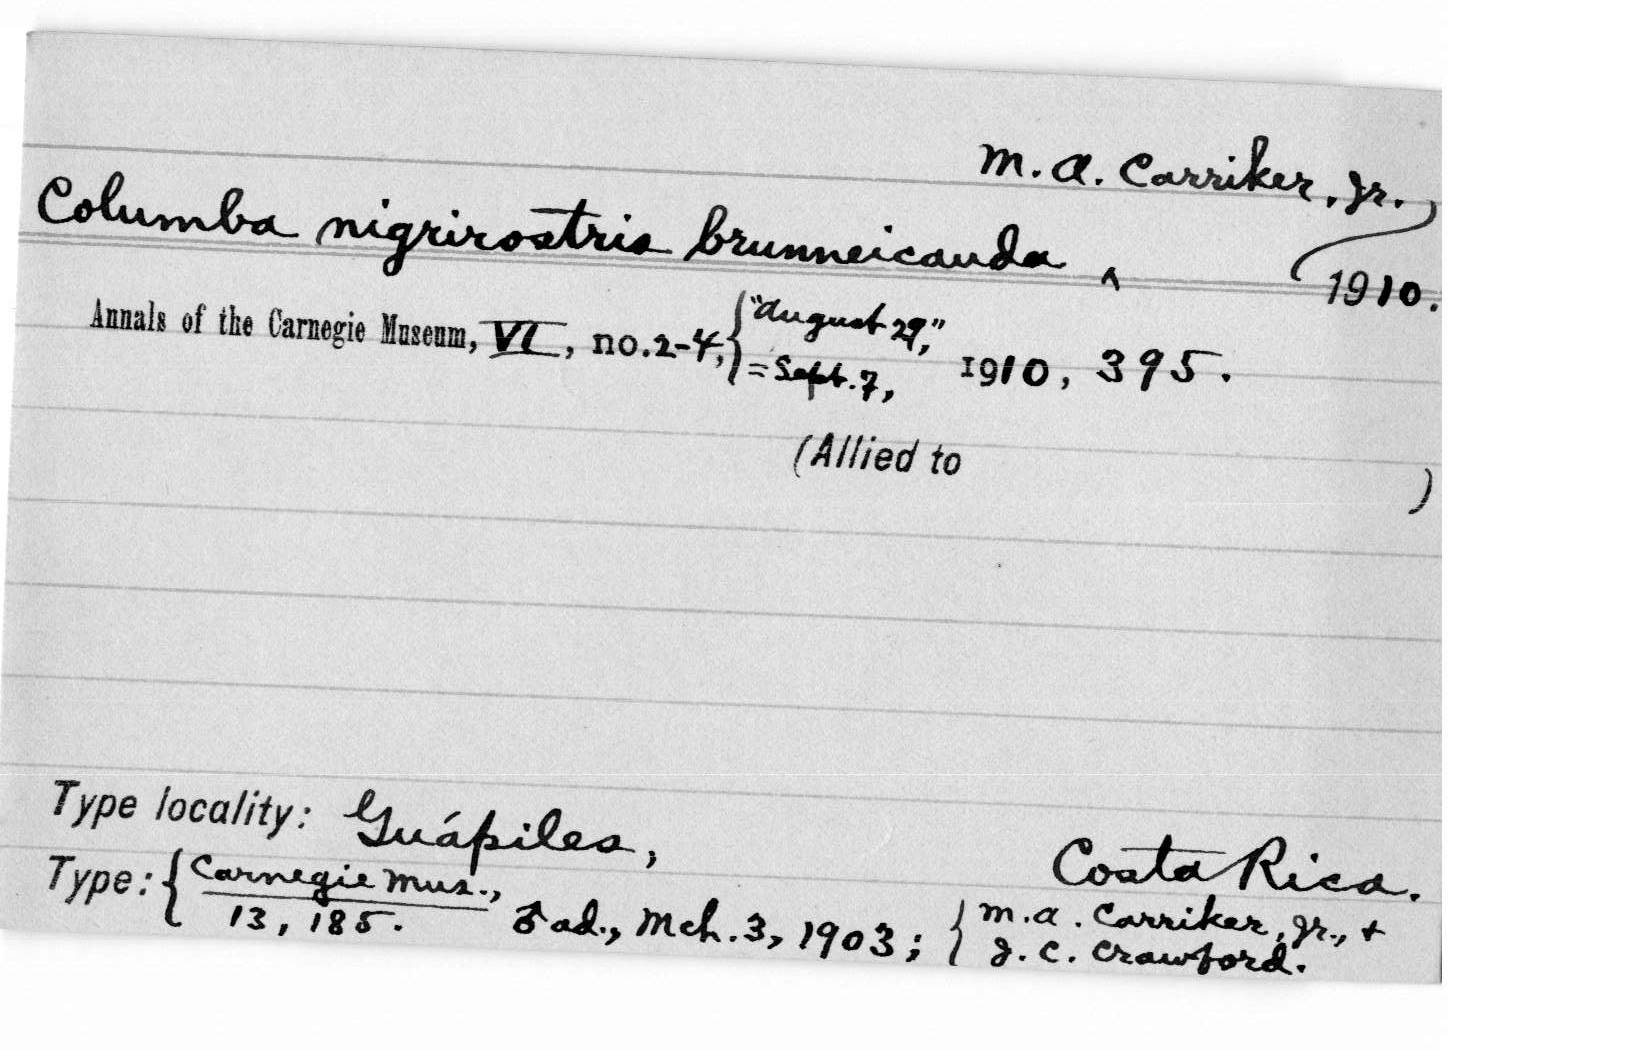 M. A. Carriker, Jr.,
Columba nigrirostris brunneicauda ^ 1910.
Annals of the Carnegie Museum, VI, no. 2-4, { "August 29," = Sept. 7, 1910, 395.
(Allied to )
Type locality: Guápiles, Costa Rica.
Type: { Carnegie Mus., 13,185. ♂ ad., Mch. 3, 1903; { M. A. Carriker, Jr., + J. C. Crawford.